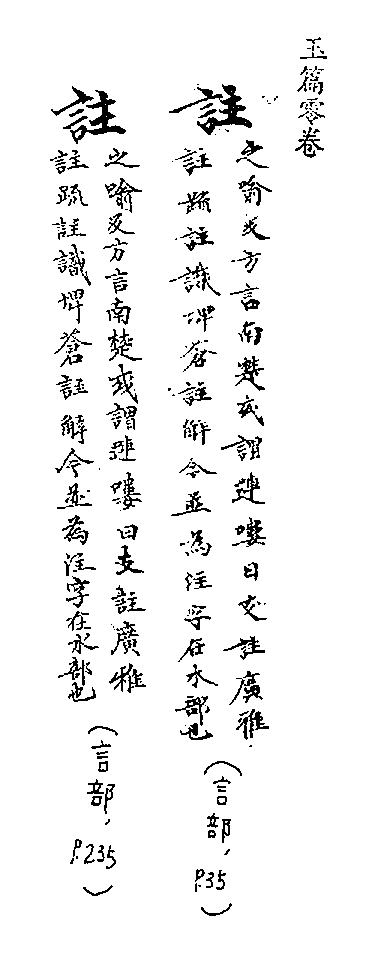 玉篇零卷
註
之喻反方言南楚或謂謰嘍曰支註廣雅
註䟽註識埤蒼註解今並為注字在水部也
(言部,P.35)
註
之喻反方言南楚或謂謰嘍曰支註廣雅
註䟽註識埤蒼註解今並為注字在水部也
(言部,P.235)